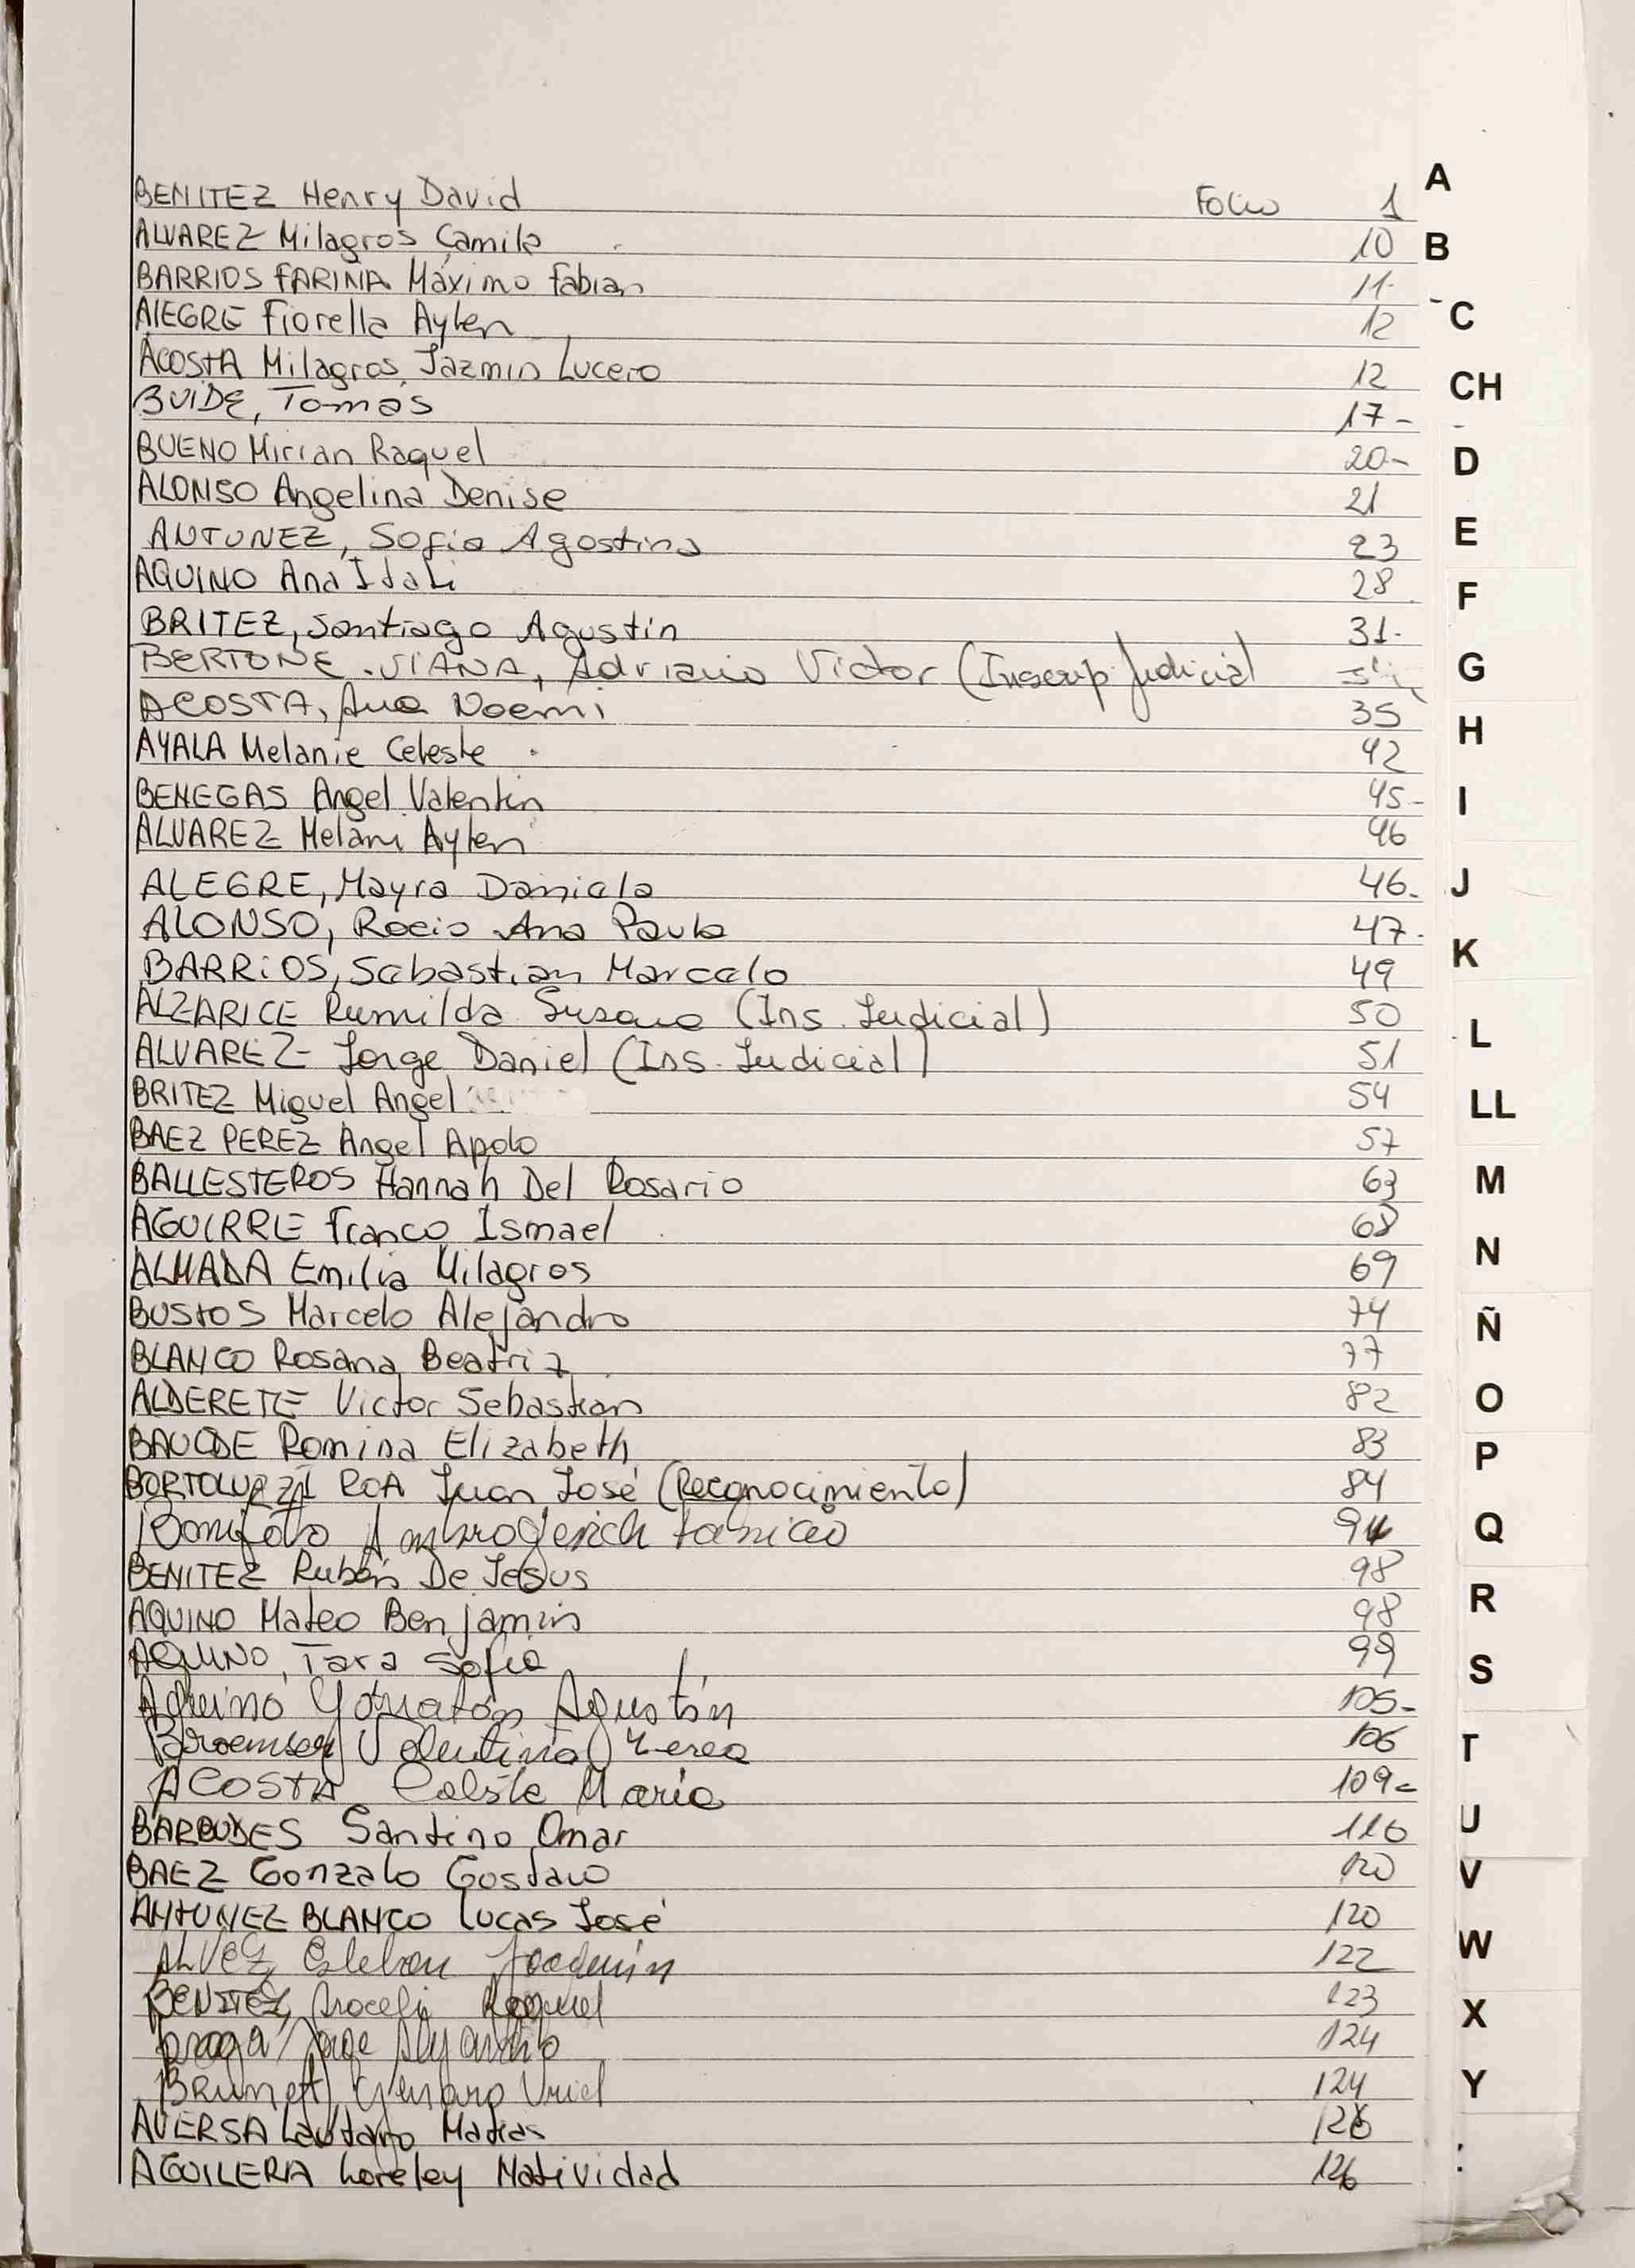 BENITEZ Henry David Folio 1
ALVAREZ Milagros Camila 10
BARRIOS FARIÑA Máximo Fabian 11.
AlEGRE Fiorella Aylen 12
ACOSTA Milagros Jazmin Lucero 12
BUIDE, Tomas 17-
BUENO Mirian Raquel 20-
ALONSO Angelina Denise 21
ANTUNEZ, Sofia Agostina 23
AQUINO Ana Idali 28
BRITEZ, Santiago Agustin 31.
BERTONE VIANA, Adriano Victor (Inscrip. Judicial
ACOSTA, Ana Noemi 35
AYALA Melanie Celeste 42
BENEGAS Angel Valentin 45-
ALVAREZ Melani Aylen 46
ALEGRE, Mayra Daniela 46.
ALONSO, Rocio Ana Paula 47.
BARRiOS, Sebastian Marcelo 49
ALZARICE Rumilda Susana (Ins. Judicial) 50
ALVAREZ Jorge Daniel (Ins. Judicial) 51
BRITEZ Miguel Angel 54
BAEZ PEREZ Angel Apolo 57
BALLESTEROS Hannah Del Rosario 63
AGUIRRE Franco Ismael 68
ALMADA Emilia Milagros 69
BUSTOS Marcelo Alejandro 74
BLANCO Rosana Beatriz 77
ALDERETE Victor Sebastian 82
BAUCDE Romina Elizabeth 83
BORTOLUZZI ROA Juan José (Reconocimiento) 84
94
BENITEZ Rubén De Jesus 98
AQUINO Mateo Benjamin 98
AQUINO, Tara Sofia 99
Aquino Yonatan Agustín 105-
Valentina 106
ACOSTA Celeste Maria 109-
Santino Omar 116
BAEZ Gonzalo Gustavo 120
ANTUNEZ BLANCO Lucas José 120
ALVEZ, Esteban Joaquin 122
BENITEZ, Araceli Raquel 123
Braga, Jorge Alejandro 124
Brunet, Genaro Uriel 124
AVERSA Lautaro Matias 126
AGUILERA Loreley Natividad 126
A
B
C
CH
D
E
F
G
H
I
J
K
L
LL
M
N
Ñ
O
P
Q
R
S
T
U
V
W
X
Y